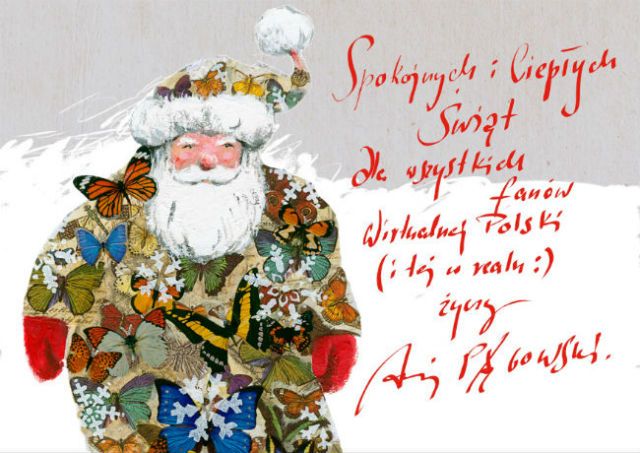 Spokojnych i Ciepłych
Świąt
dla wszystkich
fanów
Wirtualnej Polski
(i tej w realu :)
życzy
Andrzej Pągowski.